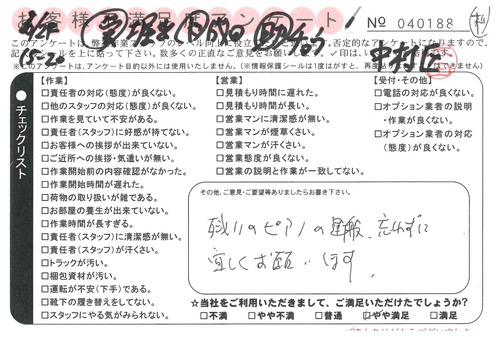 お客様満足度アンケート
No 040188
このアンケートは、弊
※このアンケートは、アンケート目的以外には使用いたしません。(※情報保護シールは1度はがすと、再度貼
チェックリスト
【作業】
□責任者の対応(態度)が良くない。
□他のスタッフの対応(態度)が良くない。
□作業を見ていて不安がある。
□責任者(スタッフ)に好感が持てない。
□お客様への挨拶が出来ていない。
□ご近所への挨拶・気遣いが無い。
□作業開始前の内容確認がなかった。
□作業開始時間が遅れた。
□荷物の取り扱いが雑である。
□お部屋の養生が出来ていない。
□作業時間が長すぎる。
□責任者(スタッフ)に清潔感が無い。
□責任者(スタッフ)が汗くさい。
□トラックが汚い。
□梱包資材が汚い。
□運転が不安(下手)である。
□靴下の履き替えをしてない。
□スタッフにやる気がみられない。
【営業】
□見積もり時間に遅れた。
□見積もり時間が長い。
□営業マンに清潔感が無い。
□営業マンが煙草くさい。
□営業マンが汗くさい。
□営業態度が良くない。
□営業の説明と作業が一致してない。
【受付・その他】
□電話の対応が良くない。
□オプション業者の説明
・作業が良くない。
□オプション業者の対応
(態度)が良くない。
その他、ご意見・ご要望等ありましたらお書き下さい。
残りのピアノの運搬、忘れずに
宜しくお願いします
☆当社をご利用いただきまして、ご満足いただけたでしょうか?
□不満 □やや不満 □普通 □やや満足 □満足